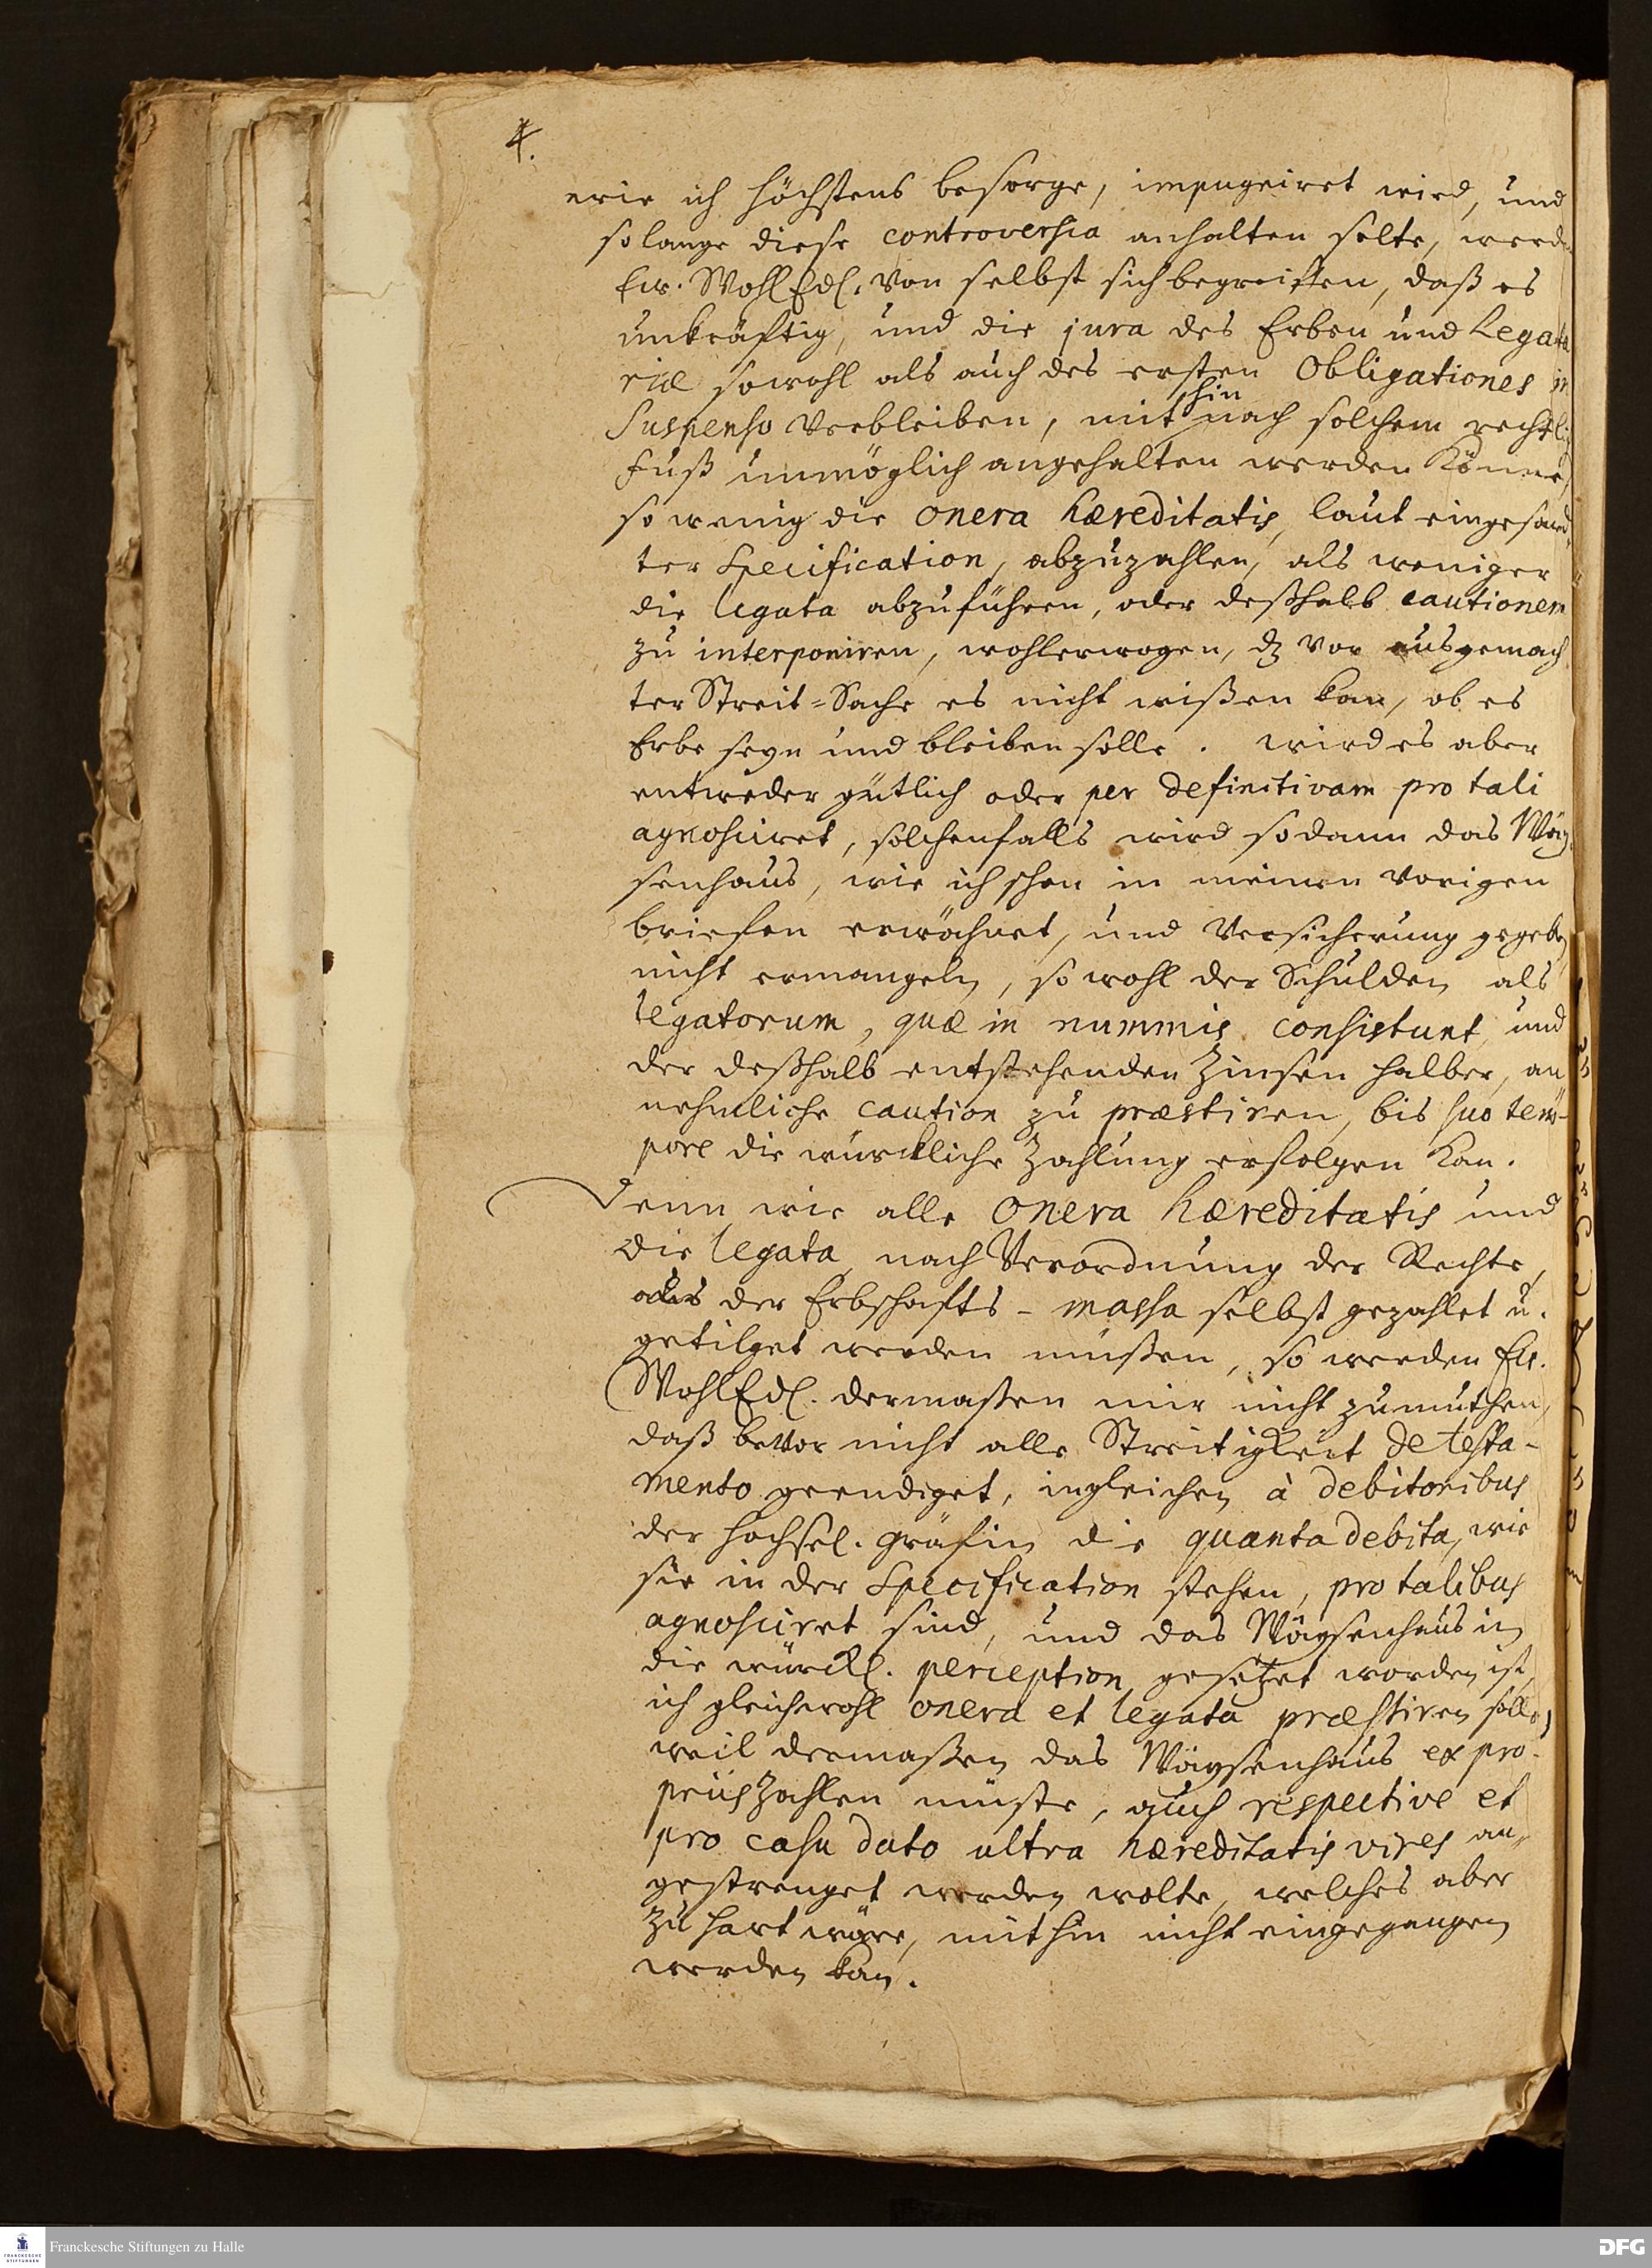 4.
wie ich höchstens besorge, impugniret wird, und
so lange diese controversia anhalten solte, werd
Ew. WohlEdl. von selbst sich begreiffen, daß es
unkräftig, und die jura des Erben und Lega
riæ sowohl als auch des ersten Obligationes in
Suspenso verbleiben, mithin nach solchem rechtli
Fuß unmöglich angehalten werden könne,
so wenig die onera hæreditatis, laut eingesand-
ter Specification, abzuzahlen, als weniger
die legata abzuführen, oder deßhalb cautionem
zu interponiren, wohlerwogen, dz vor ausgemach
ter Streit-Sache es nicht wißen kan, ob es
Erbe seyn und bleiben solle. wird es aber
entweder gütlich oder per definitivam pro tali
agnosciret, solchenfalls wird sodann das Wäy-
senhaus, wie ich schon in meinen vorigen
briefen erwähnet, und Versicherung gegeben
nicht ermangeln, so wohl der Schulden als
legatorum, quæ in nummis consistunt, und
der deßhalb entstehenden Zinsen halber, an-
nehmliche caution zu præstiren, bis suo tem-
pore die würckliche Zahlung erfolgen kan.
Denn wie alle onera hæreditatis und
die legata nach Verordnung der Rechte,
aus der Erbschafts-massa selbst gezahlet u.
getilget werden müßen, so werden Ew.
WohlEdl. dermaßen mir nicht zumuthen,
daß bevor nicht alle Streitigkeit de testa-
mento geendiget, ingleichen à debitoribus
der hochsel. Gräfin die quanta debita, wie
sie in der Specification stehen, pro talibus
agnosciret sind, und das Wäysenhaus in
die würckl. perception gesetzet worden ist,
ich gleichwohl onera et legata præstiren solle,
weil dermaßen das Wäysenhaus ex pro-
priis zahlen müste, auch respective et
pro casu dato ultra hæreditatis vires an-
gestrenget werden wolte, welches aber
zu hart wäre, mithin nicht eingegangen
werden kan.
Franckesche Stiftungen zu Halle
FRANCKESCHE STIFTUNGEN
DFG